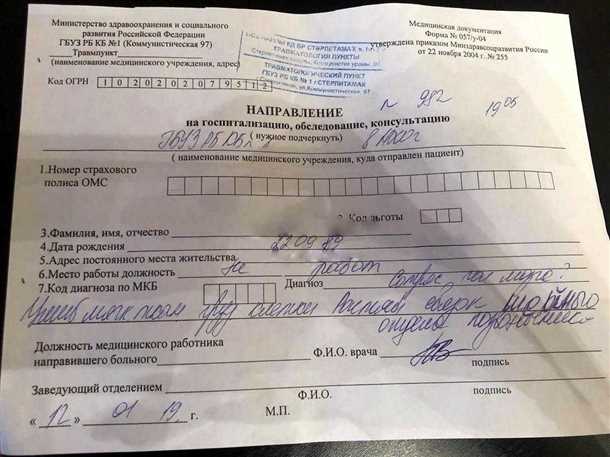 Министерство здравоохранения и социального
развития Российской Федерации
ГБУЗ РБ КБ №1 (Коммунистическая 97)
Травмпункт
(наименование медицинского учреждения, адрес)
Код ОГРН 1 0 2 0 2 0 2 0 7 9 5 1 2
Медицинская документация
Форма № 057/у-04
утверждена приказом Минздравсоцразвития России
от 22 ноября 2004 г. № 255
ТРАВМАТОЛОГИЧЕСКИЙ ПУНКТ
ГБУЗ РБ КБ № 1 г. СТЕРЛИТАМАК
НАПРАВЛЕНИЕ N 982 19 05
на госпитализацию, обследование, консультацию
ГБУЗ РБ КБ (нужное подчеркнуть)
(наименование медицинского учреждения, куда отправлен пациент)
1.Номер страхового
полиса ОМС
2. Код льготы
3.Фамилия, имя, отчество
4.Дата рождения 22 09 89
5.Адрес постоянного места жительства
6.Место работы должность не работ
7.Код диагноза по МКБ Диагноз
Ушиб мягк ткан груд клетки
отдела позвоночника
Должность медицинского работника
направившего больного Ф.И.О. врача подпись
Заведующий отделением
Ф.И.О. подпись
« 12 » 01 19 . г. М.П.